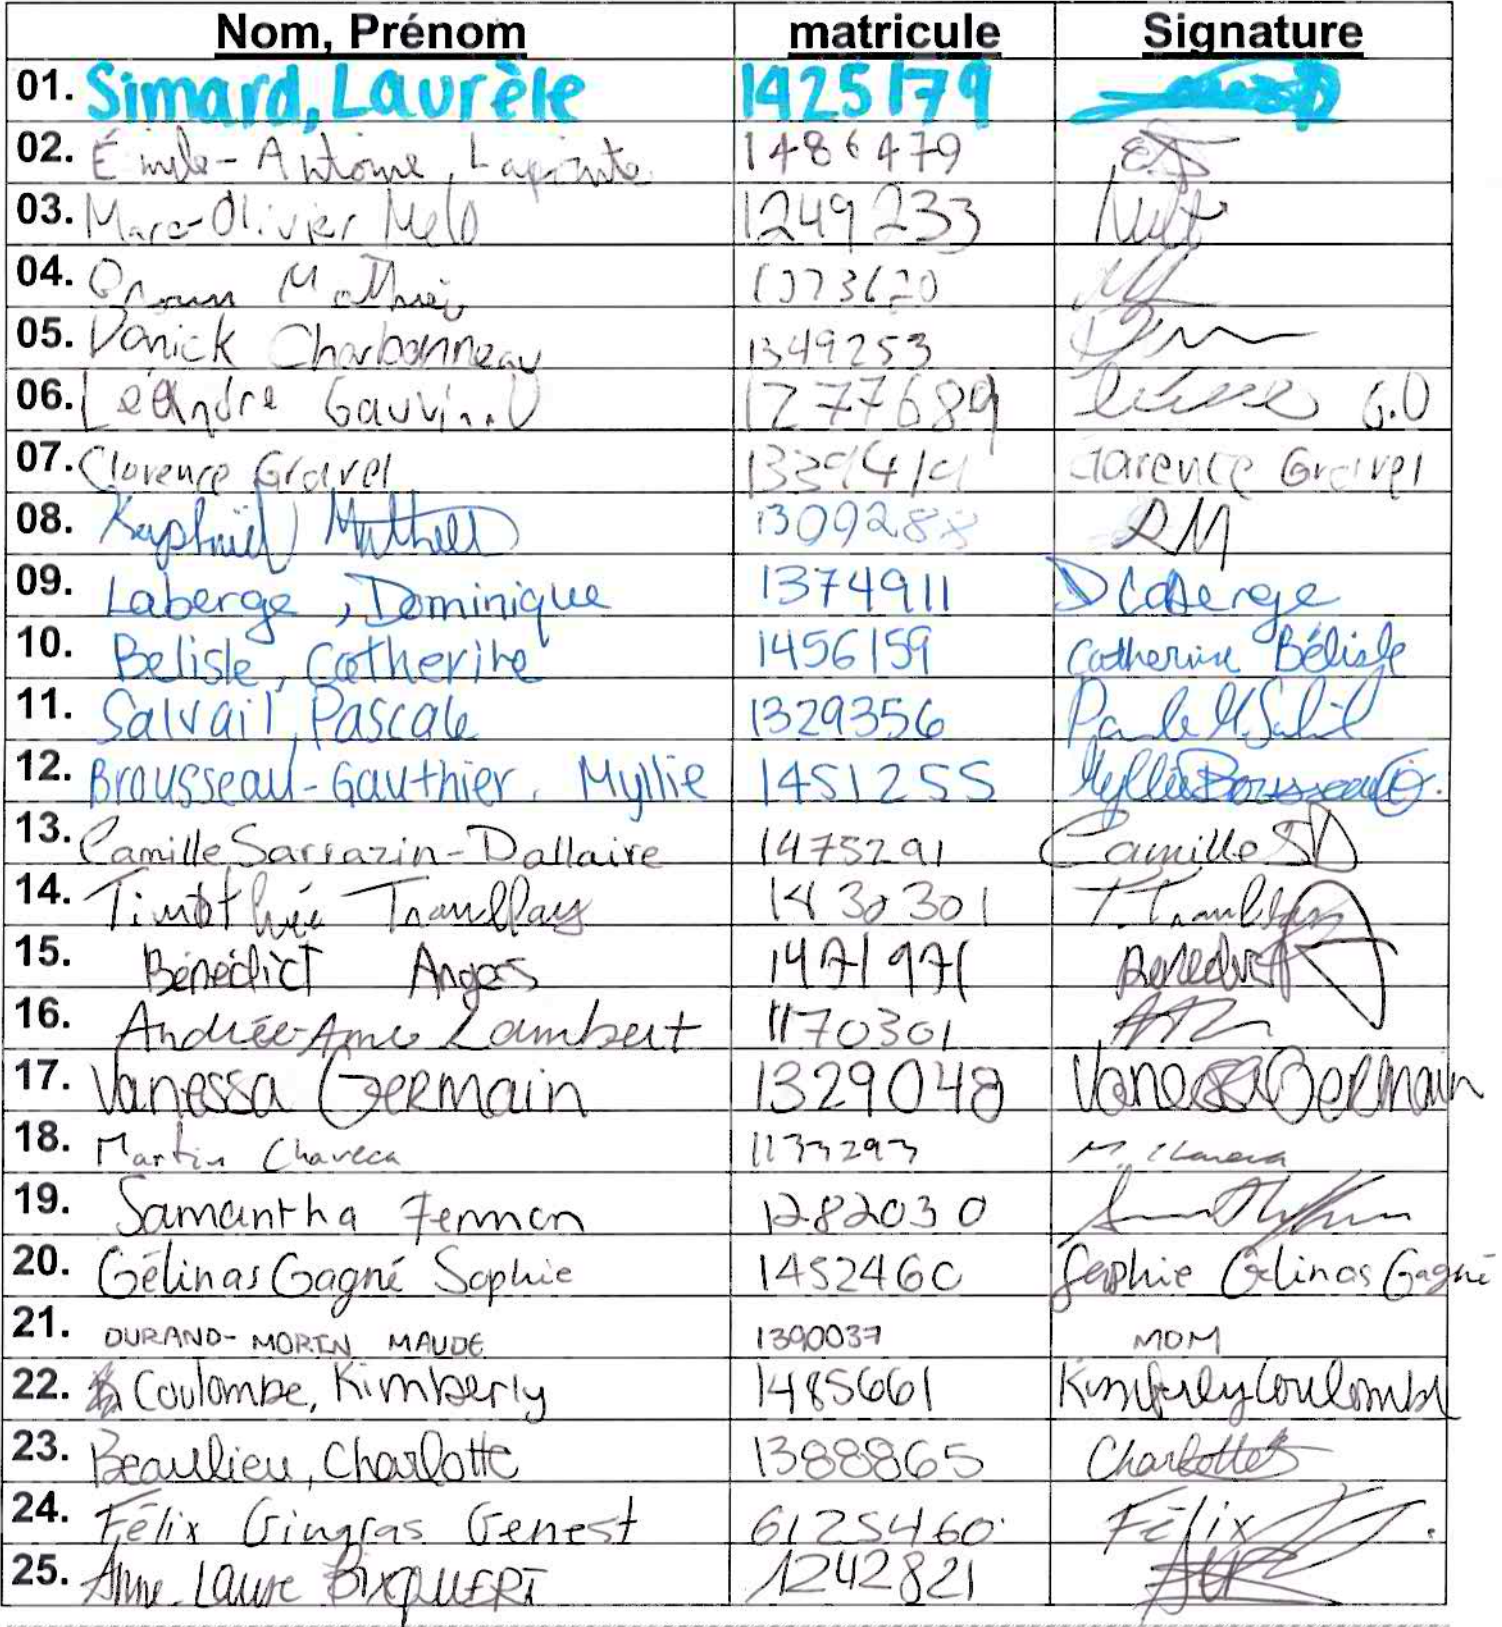 Nom, Prénom matricule Signature
01. Simard, Laurèle 1425179
02. Émile-Antoine, Lapointe 1486479
03. Marc-Olivier Melo 1249233
04. Mathieu
05. Danick Charbonneau 1349253
06. Léandre 1277689 G.O
07. Clarence Gravel Clarence Gravel
08. Raphaël 1309288 RM
09. Laberge, Dominique 1374911 D Laberge
10. Belisle, Catherine 1456159 Catherine Bélisle
11. Salvail, Pascale 1329356
12. Brousseau-Gauthier, Myllie 1451255 Myllie Brousseau G.
13. Camille Sarrazin-Dallaire 1475291 Camille SD
14. Timothée Tremblay 1430301 T. Tremblay
15. Bénédict Angers 1471971 Benedict
16. Andrée-Anne Lambert 1170301
17. Vanessa Germain 1329048 Vanessa Germain
18. Martin Chaveca 1133293 M. Chaveca
19. Samantha 1282030
20. Gélinas Gagné Sophie 1452460 Sophie Gélinas Gagné
21. DURAND-MORIN MAUDE 1390037 MDM
22. Coulombe, Kimberly 1485661 Kimberly Coulombe
23. Beaulieu, Charlotte 1388865 Charlotte B
24. Félix Gingras Genest 6125460 Félix
25. Anne-Laure 1242821